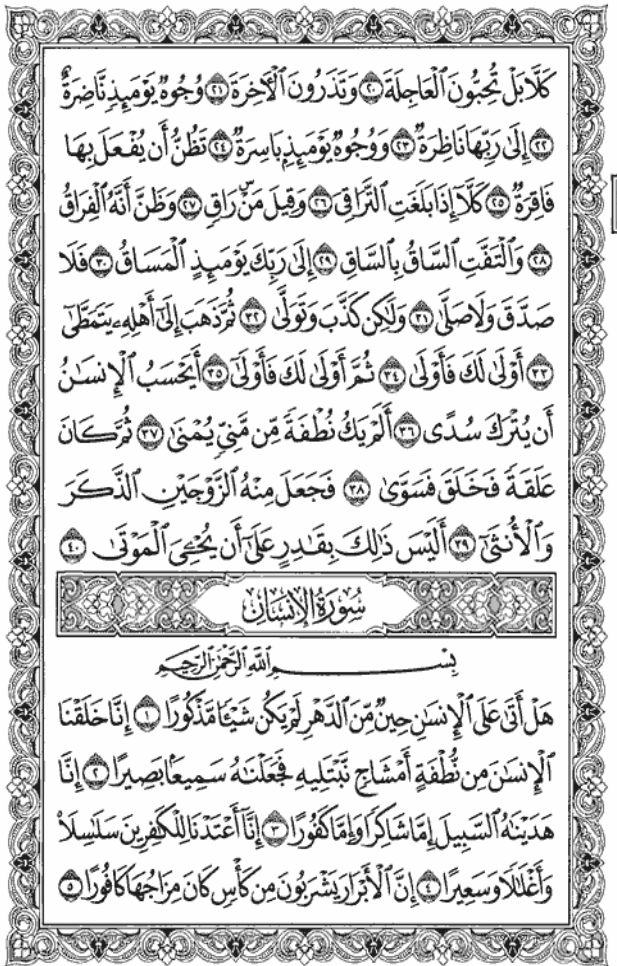 كَلَّا بَلْ تُحِبُّونَ ٱلْعَاجِلَةَ ٢٠ وَتَذَرُونَ ٱلْأَخِرَةَ ٢١ وُجُوهٌ يَوْمَئِذٍ نَّاضِرَةٌ
٢٢ إِلَىٰ رَبِّهَا نَاظِرَةٌ ٢٣ وَوُجُوهٌ يَوْمَئِذٍۭ بَاسِرَةٌ ٢٤ تَظُنُّ أَن يُفْعَلَ بِهَا
فَاقِرَةٌ ٢٥ كَلَّآ إِذَا بَلَغَتِ ٱلتَّرَاقِىَ ٢٦ وَقِيلَ مَنْۜ رَاقٍ ٢٧ وَظَنَّ أَنَّهُ ٱلْفِرَاقُ
٢٨ وَٱلْتَفَّتِ ٱلسَّاقُ بِٱلسَّاقِ ٢٩ إِلَىٰ رَبِّكَ يَوْمَئِذٍ ٱلْمَسَاقُ ٣٠ فَلَا
صَدَّقَ وَلَا صَلَّىٰ ٣١ وَلَٰكِن كَذَّبَ وَتَوَلَّىٰ ٣٢ ثُمَّ ذَهَبَ إِلَىٰٓ أَهْلِهِۦ يَتَمَطَّىٰٓ
٣٣ أَوْلَىٰ لَكَ فَأَوْلَىٰ ٣٤ ثُمَّ أَوْلَىٰ لَكَ فَأَوْلَىٰٓ ٣٥ أَيَحْسَبُ ٱلْإِنسَٰنُ
أَن يُتْرَكَ سُدًى ٣٦ أَلَمْ يَكُ نُطْفَةً مِّن مَّنِىٍّ يُمْنَىٰ ٣٧ ثُمَّ كَانَ
عَلَقَةً فَخَلَقَ فَسَوَّىٰ ٣٨ فَجَعَلَ مِنْهُ ٱلزَّوْجَيْنِ ٱلذَّكَرَ
وَٱلْأُنثَىٰٓ ٣٩ أَلَيْسَ ذَٰلِكَ بِقَٰدِرٍ عَلَىٰٓ أَن يُحْـِۧىَ ٱلْمَوْتَىٰ ٤٠
سُورَةُ الإِنسَانِ
بِسْمِ ٱللَّهِ ٱلرَّحْمَٰنِ ٱلرَّحِيمِ
هَلْ أَتَىٰ عَلَى ٱلْإِنسَٰنِ حِينٌ مِّنَ ٱلدَّهْرِ لَمْ يَكُن شَيْـًٔا مَّذْكُورًا ١ إِنَّا خَلَقْنَا
ٱلْإِنسَٰنَ مِن نُّطْفَةٍ أَمْشَاجٍ نَّبْتَلِيهِ فَجَعَلْنَٰهُ سَمِيعًۢا بَصِيرًا ٢ إِنَّا
هَدَيْنَٰهُ ٱلسَّبِيلَ إِمَّا شَاكِرًا وَإِمَّا كَفُورًا ٣ إِنَّآ أَعْتَدْنَا لِلْكَٰفِرِينَ سَلَٰسِلَا۟
وَأَغْلَٰلًا وَسَعِيرًا ٤ إِنَّ ٱلْأَبْرَارَ يَشْرَبُونَ مِن كَأْسٍ كَانَ مِزَاجُهَا كَافُورًا ٥